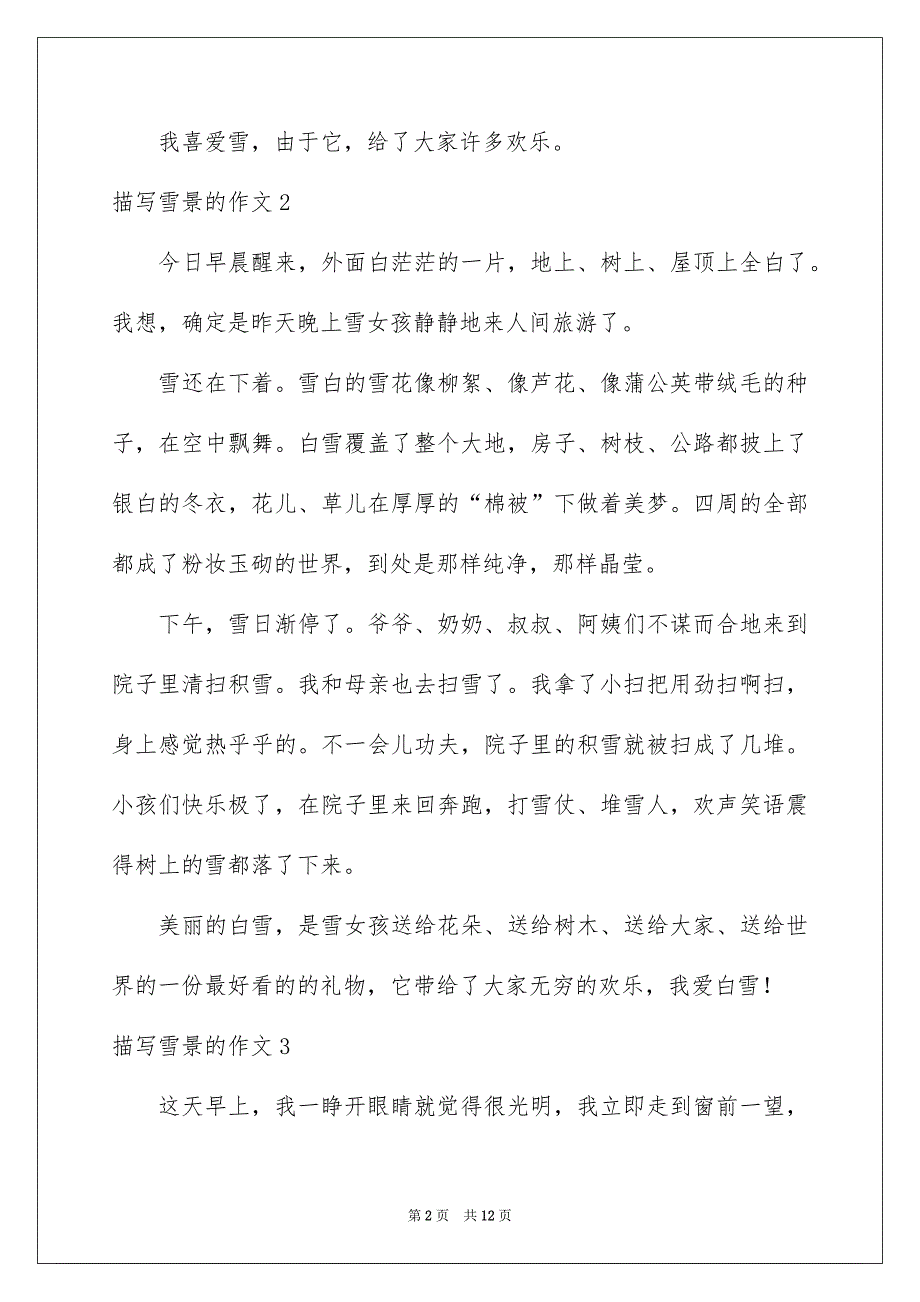 我喜爱雪，由于它，给了大家许多欢乐。
描写雪景的作文2
今日早晨醒来，外面白茫茫的一片，地上、树上、屋顶上全白了。
我想，确定是昨天晚上雪女孩静静地来人间旅游了。
雪还在下着。雪白的雪花像柳絮、像芦花、像蒲公英带绒毛的种
子，在空中飘舞。白雪覆盖了整个大地，房子、树枝、公路都披上了
银白的冬衣，花儿、草儿在厚厚的“棉被”下做着美梦。四周的全部
都成了粉妆玉砌的世界，到处是那样纯净，那样晶莹。
下午，雪日渐停了。爷爷、奶奶、叔叔、阿姨们不谋而合地来到
院子里清扫积雪。我和母亲也去扫雪了。我拿了小扫把用劲扫啊扫，
身上感觉热乎乎的。不一会儿功夫，院子里的积雪就被扫成了几堆。
小孩们快乐极了，在院子里来回奔跑，打雪仗、堆雪人，欢声笑语震
得树上的雪都落了下来。
美丽的白雪，是雪女孩送给花朵、送给树木、送给大家、送给世
界的一份最好看的的礼物，它带给了大家无穷的欢乐，我爱白雪！
描写雪景的作文3
这天早上，我一睁开眼睛就觉得很光明，我立即走到窗前一望，
第2页 共12页